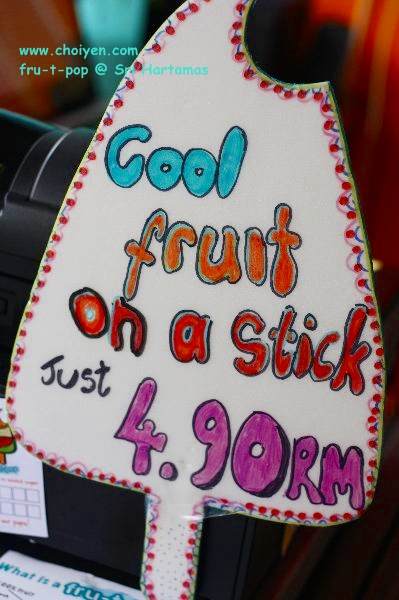 www.choiyen.com
fru-t-pop @ Sri Hartamas
Cool
fruit
on a stick
Just
4.90RM
What is a fru-t